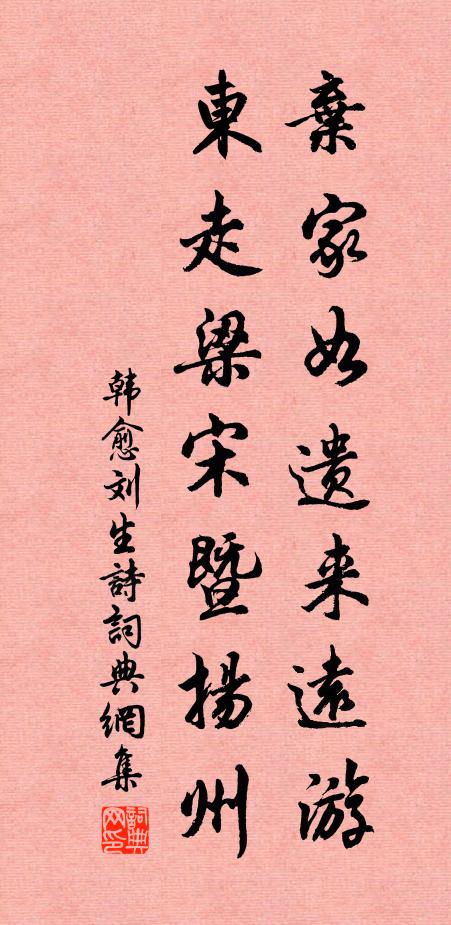 棄家如遗来遠游
東走梁宋暨揚州
韩愈刘生詩詞典網集
詞典网印